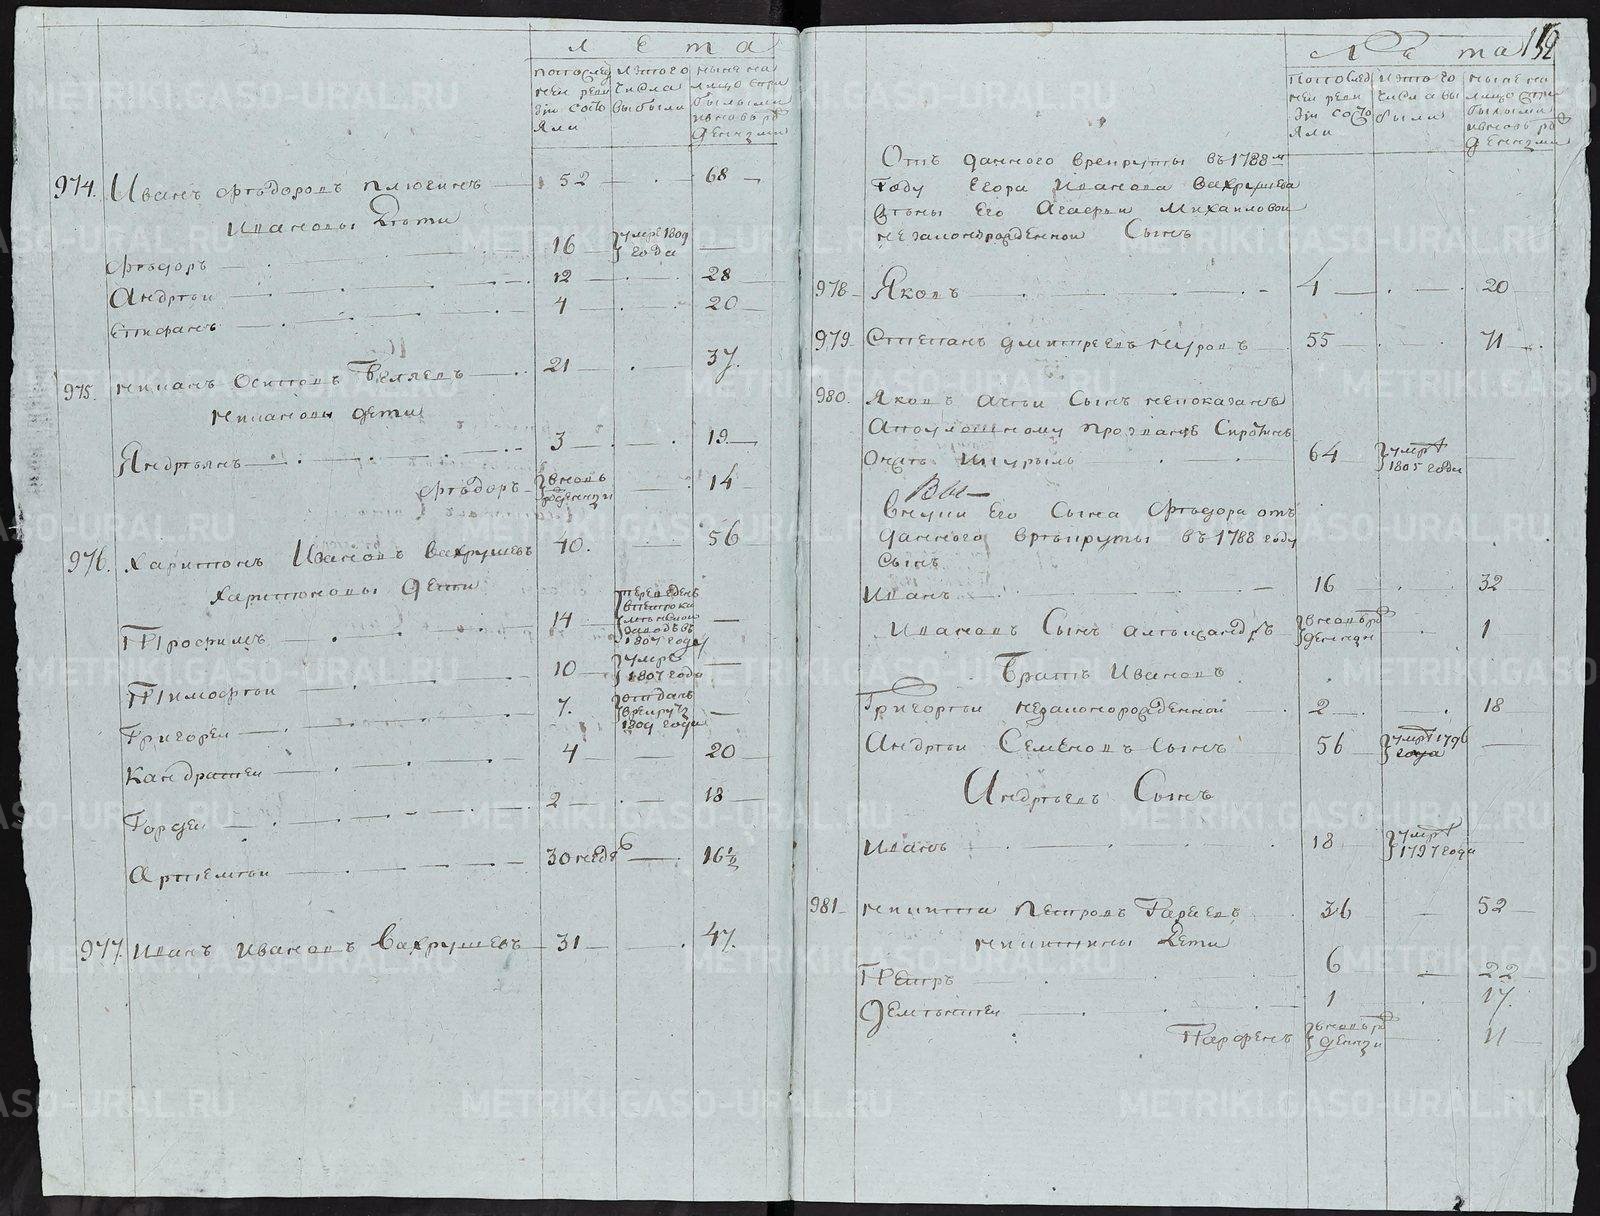 Лета
по последней ревизии состояли
из того числа выбыли
ныне на лицо с прибылыми и вновь рожденными
974. Иванъ Ѳѣдоровъ Плюснинъ 52 68
Ивановы Дѣти
Ѳѣдоръ 16 умре 1809 года
Андрѣи 12 28
Епифанъ 4 20
975. Осиповъ Бѣляевъ 21 37
дети
Яндрѣянъ 3 19
Ѳѣдоръ вновь рожденны 14
976. Харитонъ Ивановъ Вахрушевъ 40. 56
Харитоновы дети
Трофимъ 14 переведенъ заводъ въ 1807 году
Тимофѣи 10 умре 1807 года
Григореи 7. отданъ врекруты 1809 года
Кандратеи 4 20
Гордеи 2 18
Артемѣи 30 недѣ 16½
977. Иванъ Ивановъ Вахрушевъ 31 47.
Лѣта
152
по последней ревизии состояли
из того числа выбыли
ныне на лицо с прибылыми и вновь рожденными
Отъ данного врекруты въ 1788м
году Егора Иванова Вахрушева
жены Его Агафьи Михаиловои
незаконорожденнои Сынъ
978 Яковъ 4 20
979 Степанъ Дмитреевъ 55 71
980. Яковъ Сынъ непоказанъ
64 умре 1805 годы
Вы
внуки Его Сына Ѳѣдора отъ
данного врекруты въ 1788 году
Сынъ
Иванъ 16 32
Ивановъ Сынъ Алѣксандръ вновь рожденны 1
Братъ Ивановъ
Григорѣи незаконорожденнои 2 18
Андрѣи Семеновъ Сынъ 56 умре 1796 года
Андрѣевъ Сынъ
Иванъ 18 умре 1797 года
981 Никита Петровъ Гараевъ 36 52
Никитины Дети
Петръ 6 22
Дементеи 1 17.
Парфенъ вновь рожденны 11
METRIKI.GASO-URAL.RU